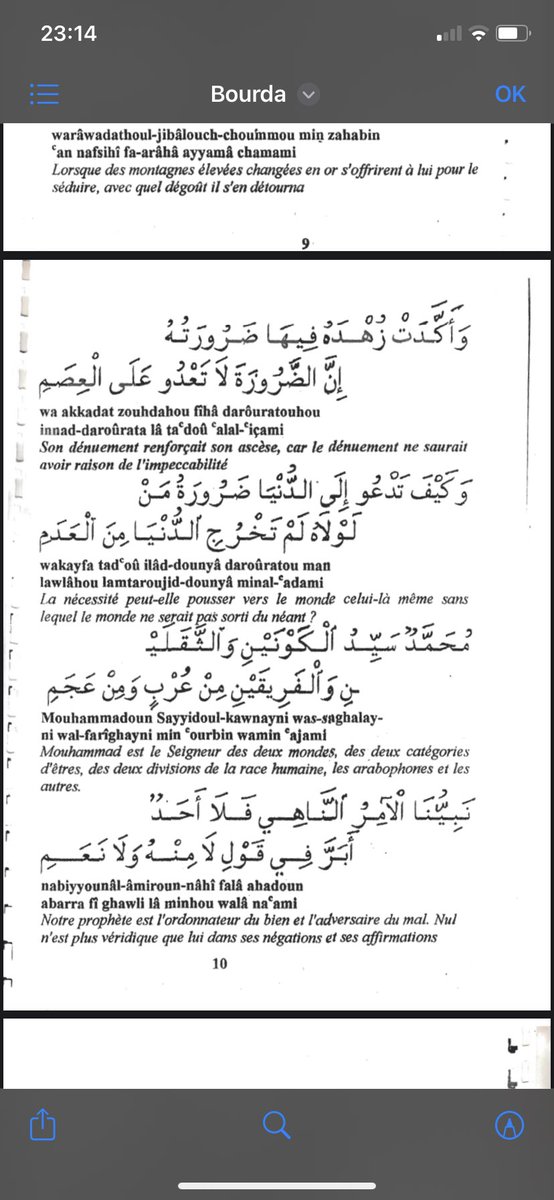 23:14
Bourda
OK
warâwadathoul-jibâlouch-choummou min zahabin
ʿan nafsihî fa-arâhâ ayyamâ chamami
Lorsque des montagnes élevées changées en or s'offrirent à lui pour le
séduire, avec quel dégoût il s'en détourna
9
وَأَكَّدَتْ زُهْدَهُ فِيهَا ضَرُورَتُهُ
إِنَّ الضَّرُورَةَ لَا تَعْدُو عَلَى الْعِصَمِ
wa akkadat zouhdahou fîhâ darôuratouhou
innad-daroûrata lâ taʿdoû ʿalal-ʿiçami
Son dénuement renforçait son ascèse, car le dénuement ne saurait
avoir raison de l'impeccabilité
وَكَيْفَ تَدْعُو إِلَى الدُّنْيَا ضَرُورَةُ مَنْ
لَوْلَاهُ لَمْ تَخْرُجِ ٱلدُّنْيَا مِنَ ٱلْعَدَمِ
wakayfa tadʿoû ilâd-dounyâ daroûratou man
lawlâhou lamtaroujid-dounyâ minal-ʿadami
La nécessité peut-elle pousser vers le monde celui-là même sans
lequel le monde ne serait pas sorti du néant ?
مُحَمَّدٌ سَيِّدُ ٱلْكَوْنَيْنِ وَٱلثَّقَلَيْـ
ـنِ وَٱلْفَرِيقَيْنِ مِنْ عُرْبٍ وَمِنْ عَجَمِ
Mouhammadoun Sayyidoul-kawnayni was-saghalay-
ni wal-farîghayni min ʿourbin wamin ʿajami
Mouhammad est le Seigneur des deux mondes, des deux catégories
d'êtres, des deux divisions de la race humaine, les arabophones et les
autres.
نَبِيُّنَا الْآمِرُ ٱلنَّاهِي فَلَا أَحَدٌ
أَبَرَّ فِي قَوْلِ لَا مِنْهُ وَلَا نَعَمِ
nabiyyounâl-âmiroun-nâhî falâ ahadoun
abarra fî ghawli lâ minhou walâ naʿami
Notre prophète est l'ordonnateur du bien et l'adversaire du mal. Nul
n'est plus véridique que lui dans ses négations et ses affirmations
10